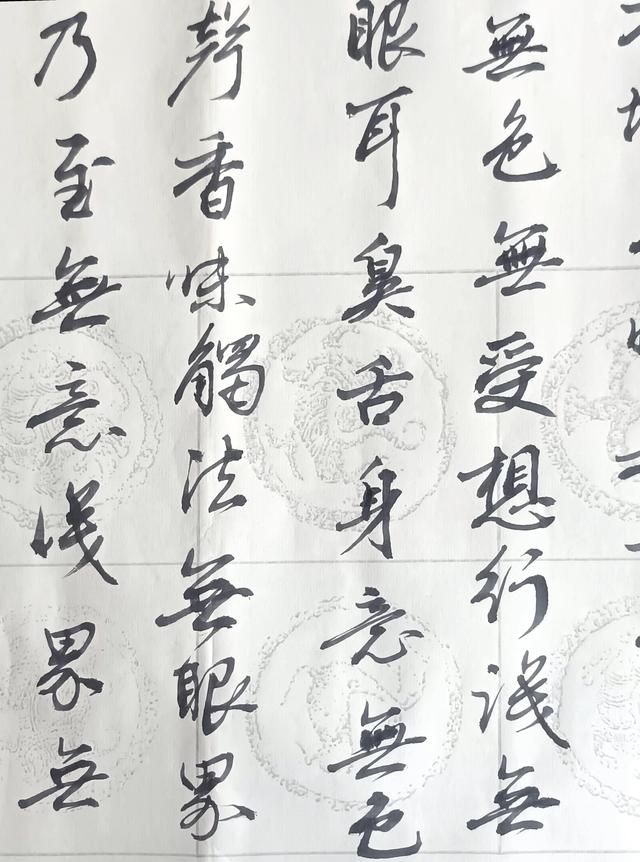 無色無受想行識無
眼耳鼻舌身意無色
聲香味觸法無眼界
乃至無意識界無